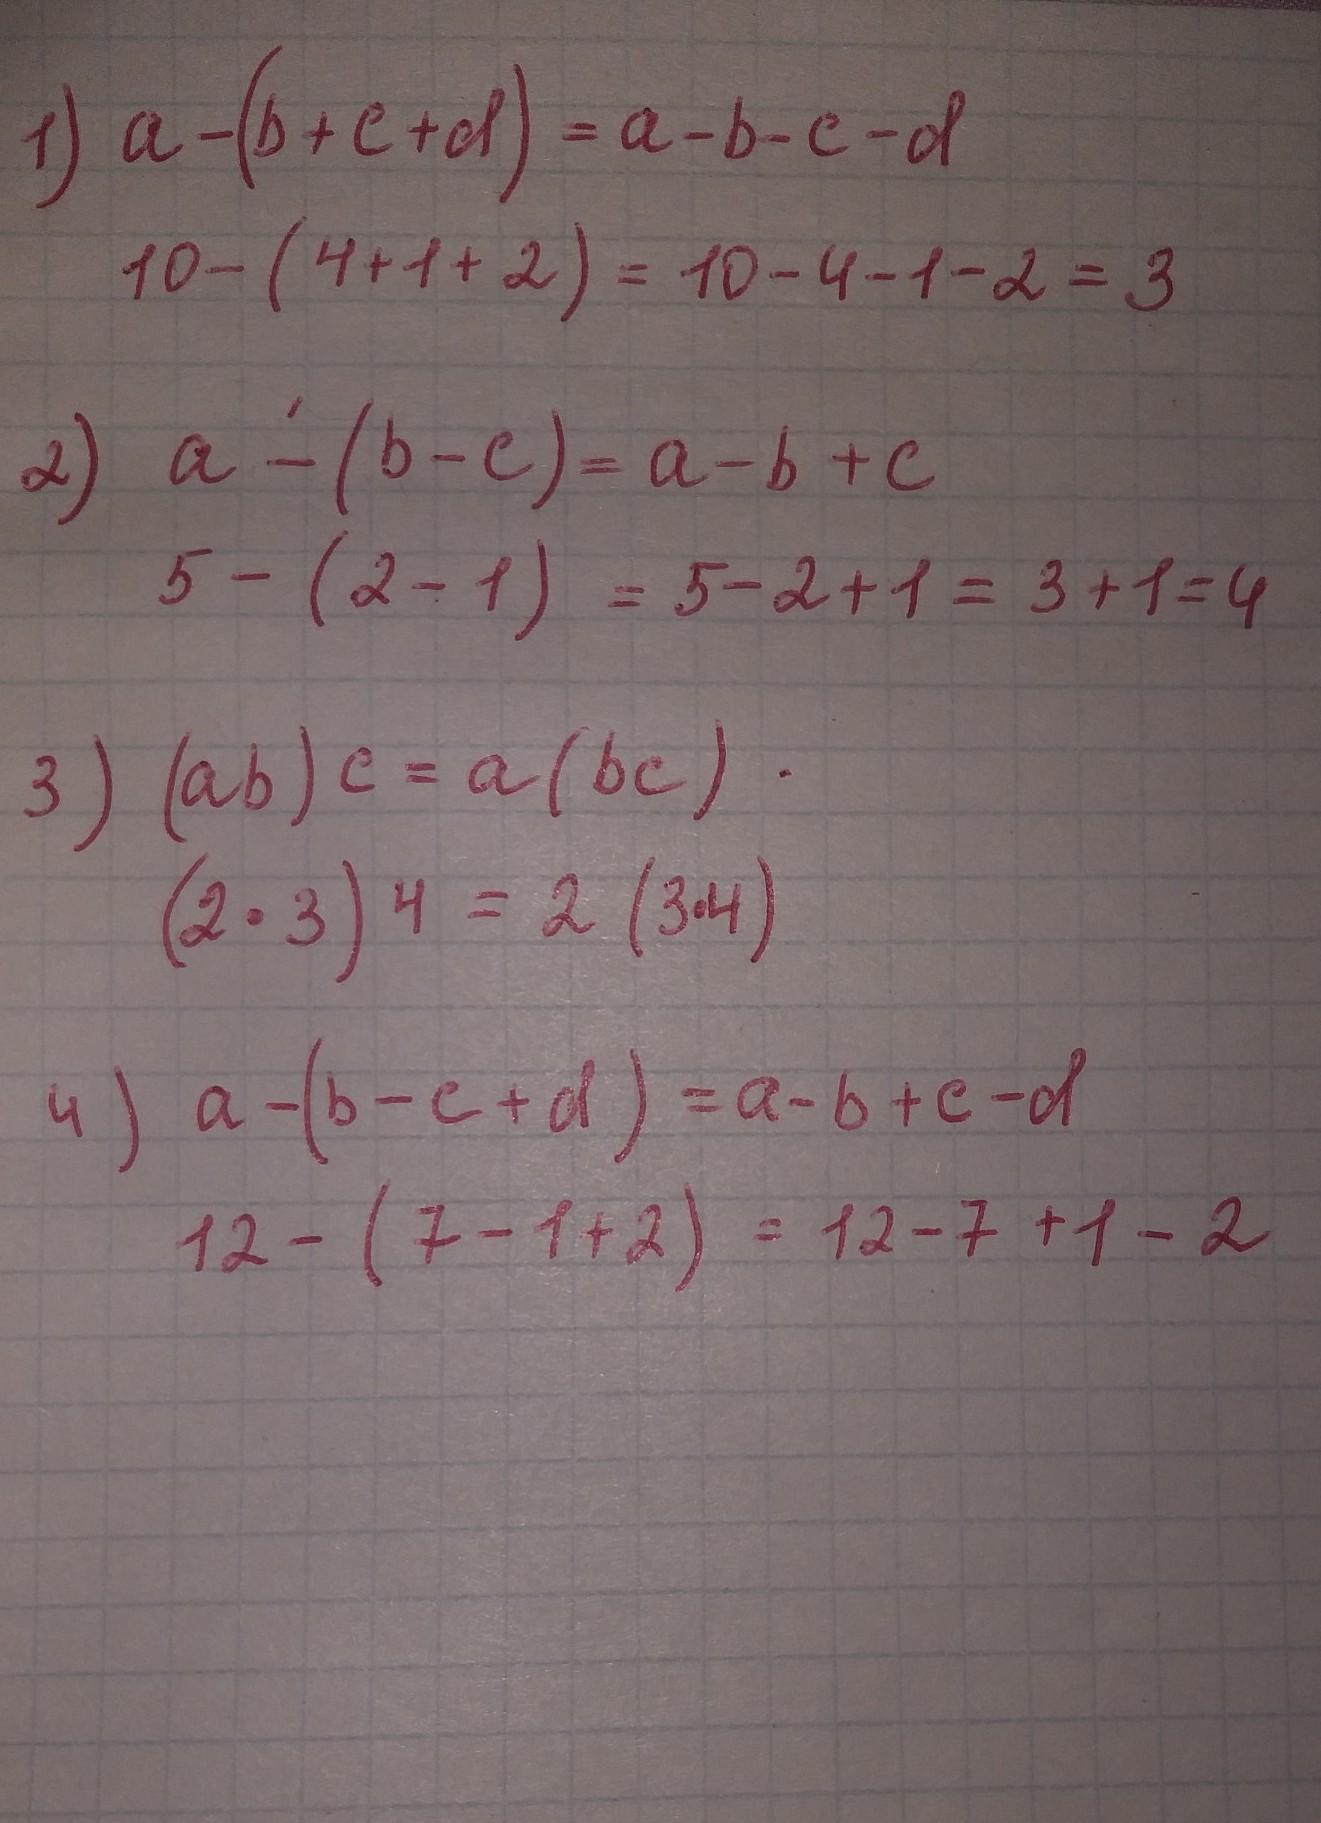 1) a-(b+c+d) = a-b-c-d
10-(4+1+2) = 10-4-1-2 = 3
2) a - (b-c) = a-b+c
5 - (2-1) = 5-2+1 = 3+1=4
3) (ab)c = a(bc)
(2·3)4 = 2(3·4)
4) a-(b-c+d) = a-b+c-d
12-(7-1+2) = 12-7+1-2